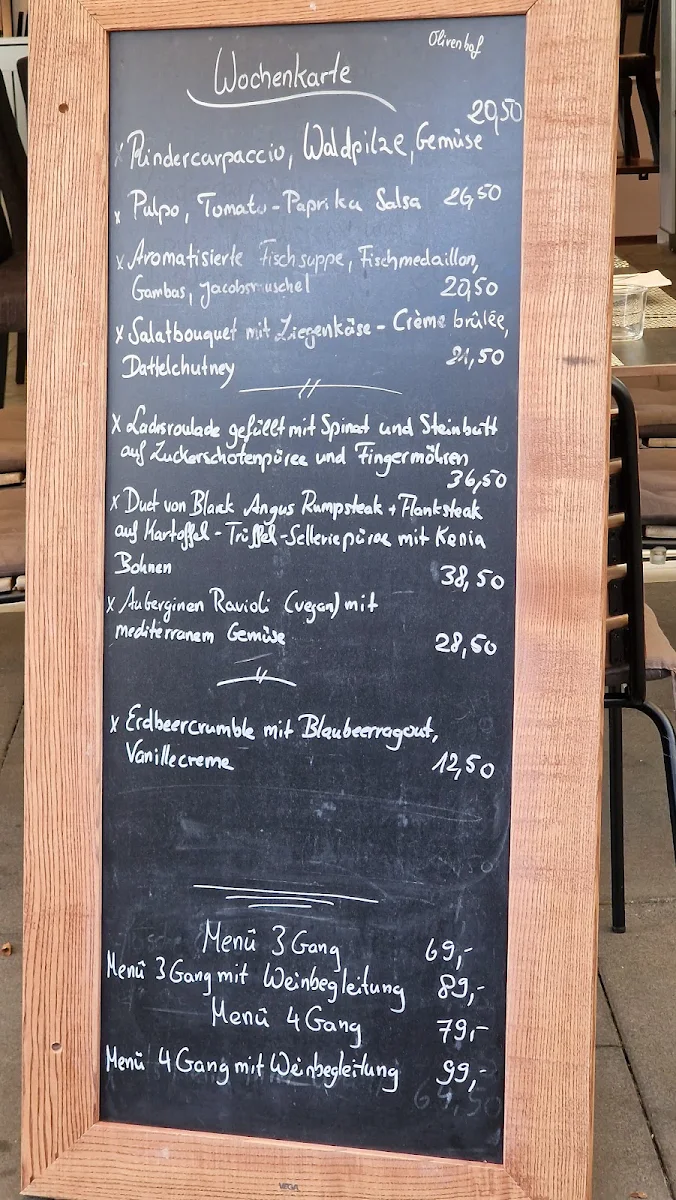 Olivenhof
Wochenkarte
20,50
x Rindercarpaccio, Waldpilze, Gemüse
x Pulpo, Tomato-Paprika Salsa 26,50
x Aromatisierte Fischsuppe, Fischmedaillon,
Gambas, Jacobsmuschel 20,50
x Salatbouquet mit Ziegenkäse - Crème brûlée,
Dattelchutney 21,50
x Lachsroulade gefüllt mit Spinat und Steinbutt
auf Zuckerschotenpüree und Fingermöhren
36,50
x Duet von Black Angus Rumpsteak + Flanksteak
auf Kartoffel-Trüffel-Selleriepüree mit Kenia
Bohnen 38,50
x Auberginen Ravioli (vegan) mit
mediterranem Gemüse 28,50
x Erdbeercrumble mit Blaubeerragout,
Vanillecreme 12,50
Menü 3 Gang 69,-
Menü 3 Gang mit Weinbegleitung 89,-
Menü 4 Gang 79,-
Menü 4 Gang mit Weinbegleitung 99,-
64,50
VEGA